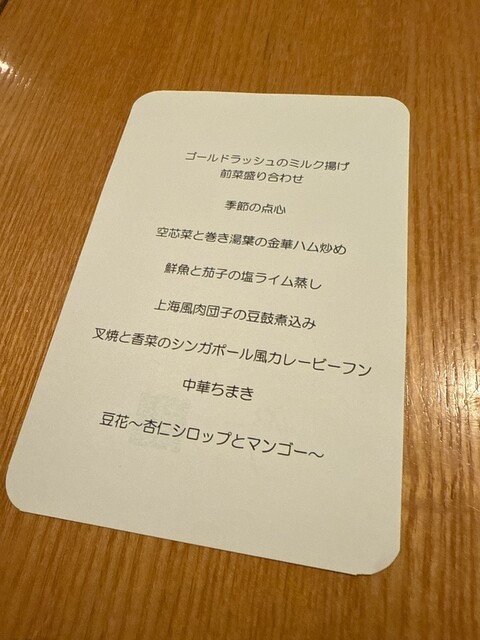 ゴールドラッシュのミルク揚げ
前菜盛り合わせ
季節の点心
空芯菜と巻き湯葉の金華ハム炒め
鮮魚と茄子の塩ライム蒸し
上海風肉団子の豆鼓煮込み
叉焼と香菜のシンガポール風カレービーフン
中華ちまき
豆花～杏仁シロップとマンゴー～